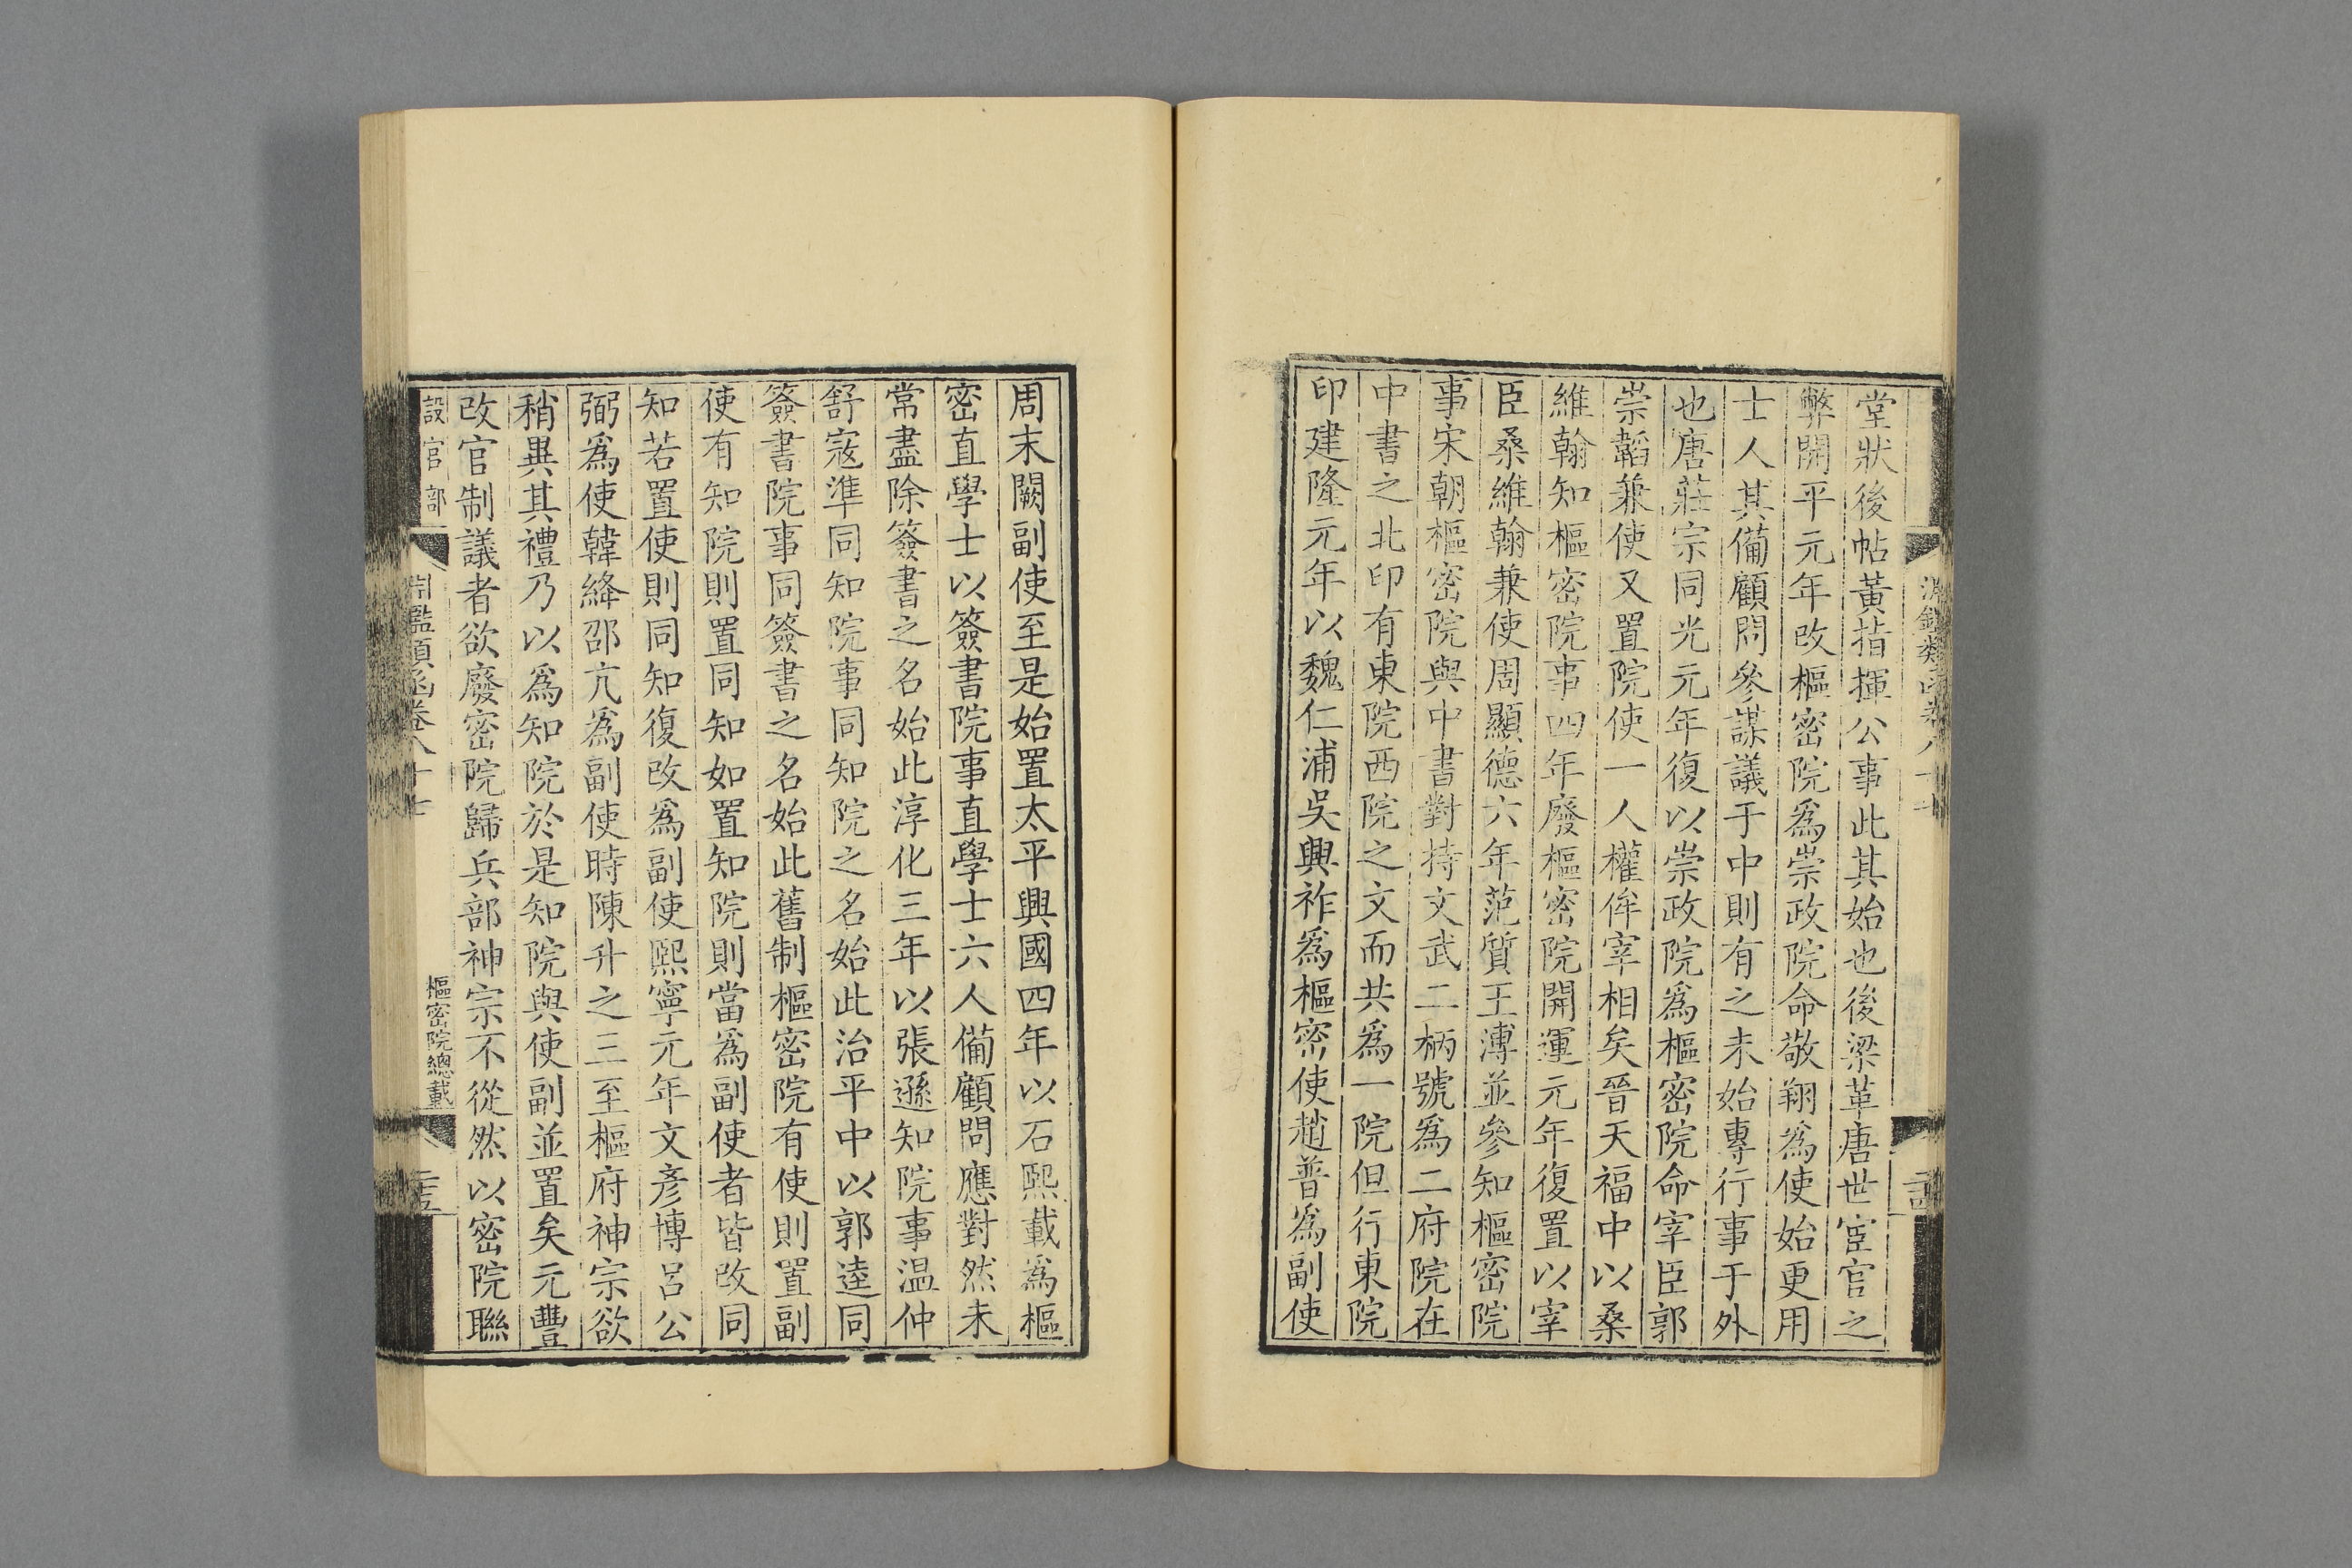 堂狀後帖黃指揮公事此其始也後梁革唐世宦官之
弊開平元年改樞密院爲崇政院命敬翔爲使始更用
士人其備顧問參謀議于中則有之未始專行事于外
也唐莊宗同光元年復以崇政院爲樞密院命宰臣郭
崇韜兼使又置院使一人權侔宰相矣晉天福中以桑
維翰知樞密院事四年廢樞密院開運元年復置以宰
臣桑維翰兼使周顯德六年范質王溥並參知樞密院
事宋朝樞密院與中書對持文武二柄號爲二府院在
中書之北印有東院西院之文而共爲一院但行東院
印建隆元年以魏仁浦吳興祚爲樞密使趙普爲副使
周末闕副使至是始置太平興國四年以石熙載爲樞
密直學士以簽書院事直學士六人備顧問應對然未
常盡除簽書之名始此淳化三年以張遜知院事温仲
舒寇準同知院事同知院之名始此治平中以郭逵同
簽書院事同簽書之名始此舊制樞密院有使則置副
使有知院則置同知如置知院則當爲副使者皆改同
知若置使則同知復改爲副使熙寧元年文彥博呂公
弼爲使韓絳邵亢爲副使時陳升之三至樞府神宗欲
稍異其禮乃以爲知院於是知院與使副並置矣元豐
改官制議者欲廢密院歸兵部神宗不從然以密院聯
設官部
淵鑑類函卷八十七
樞密院總載